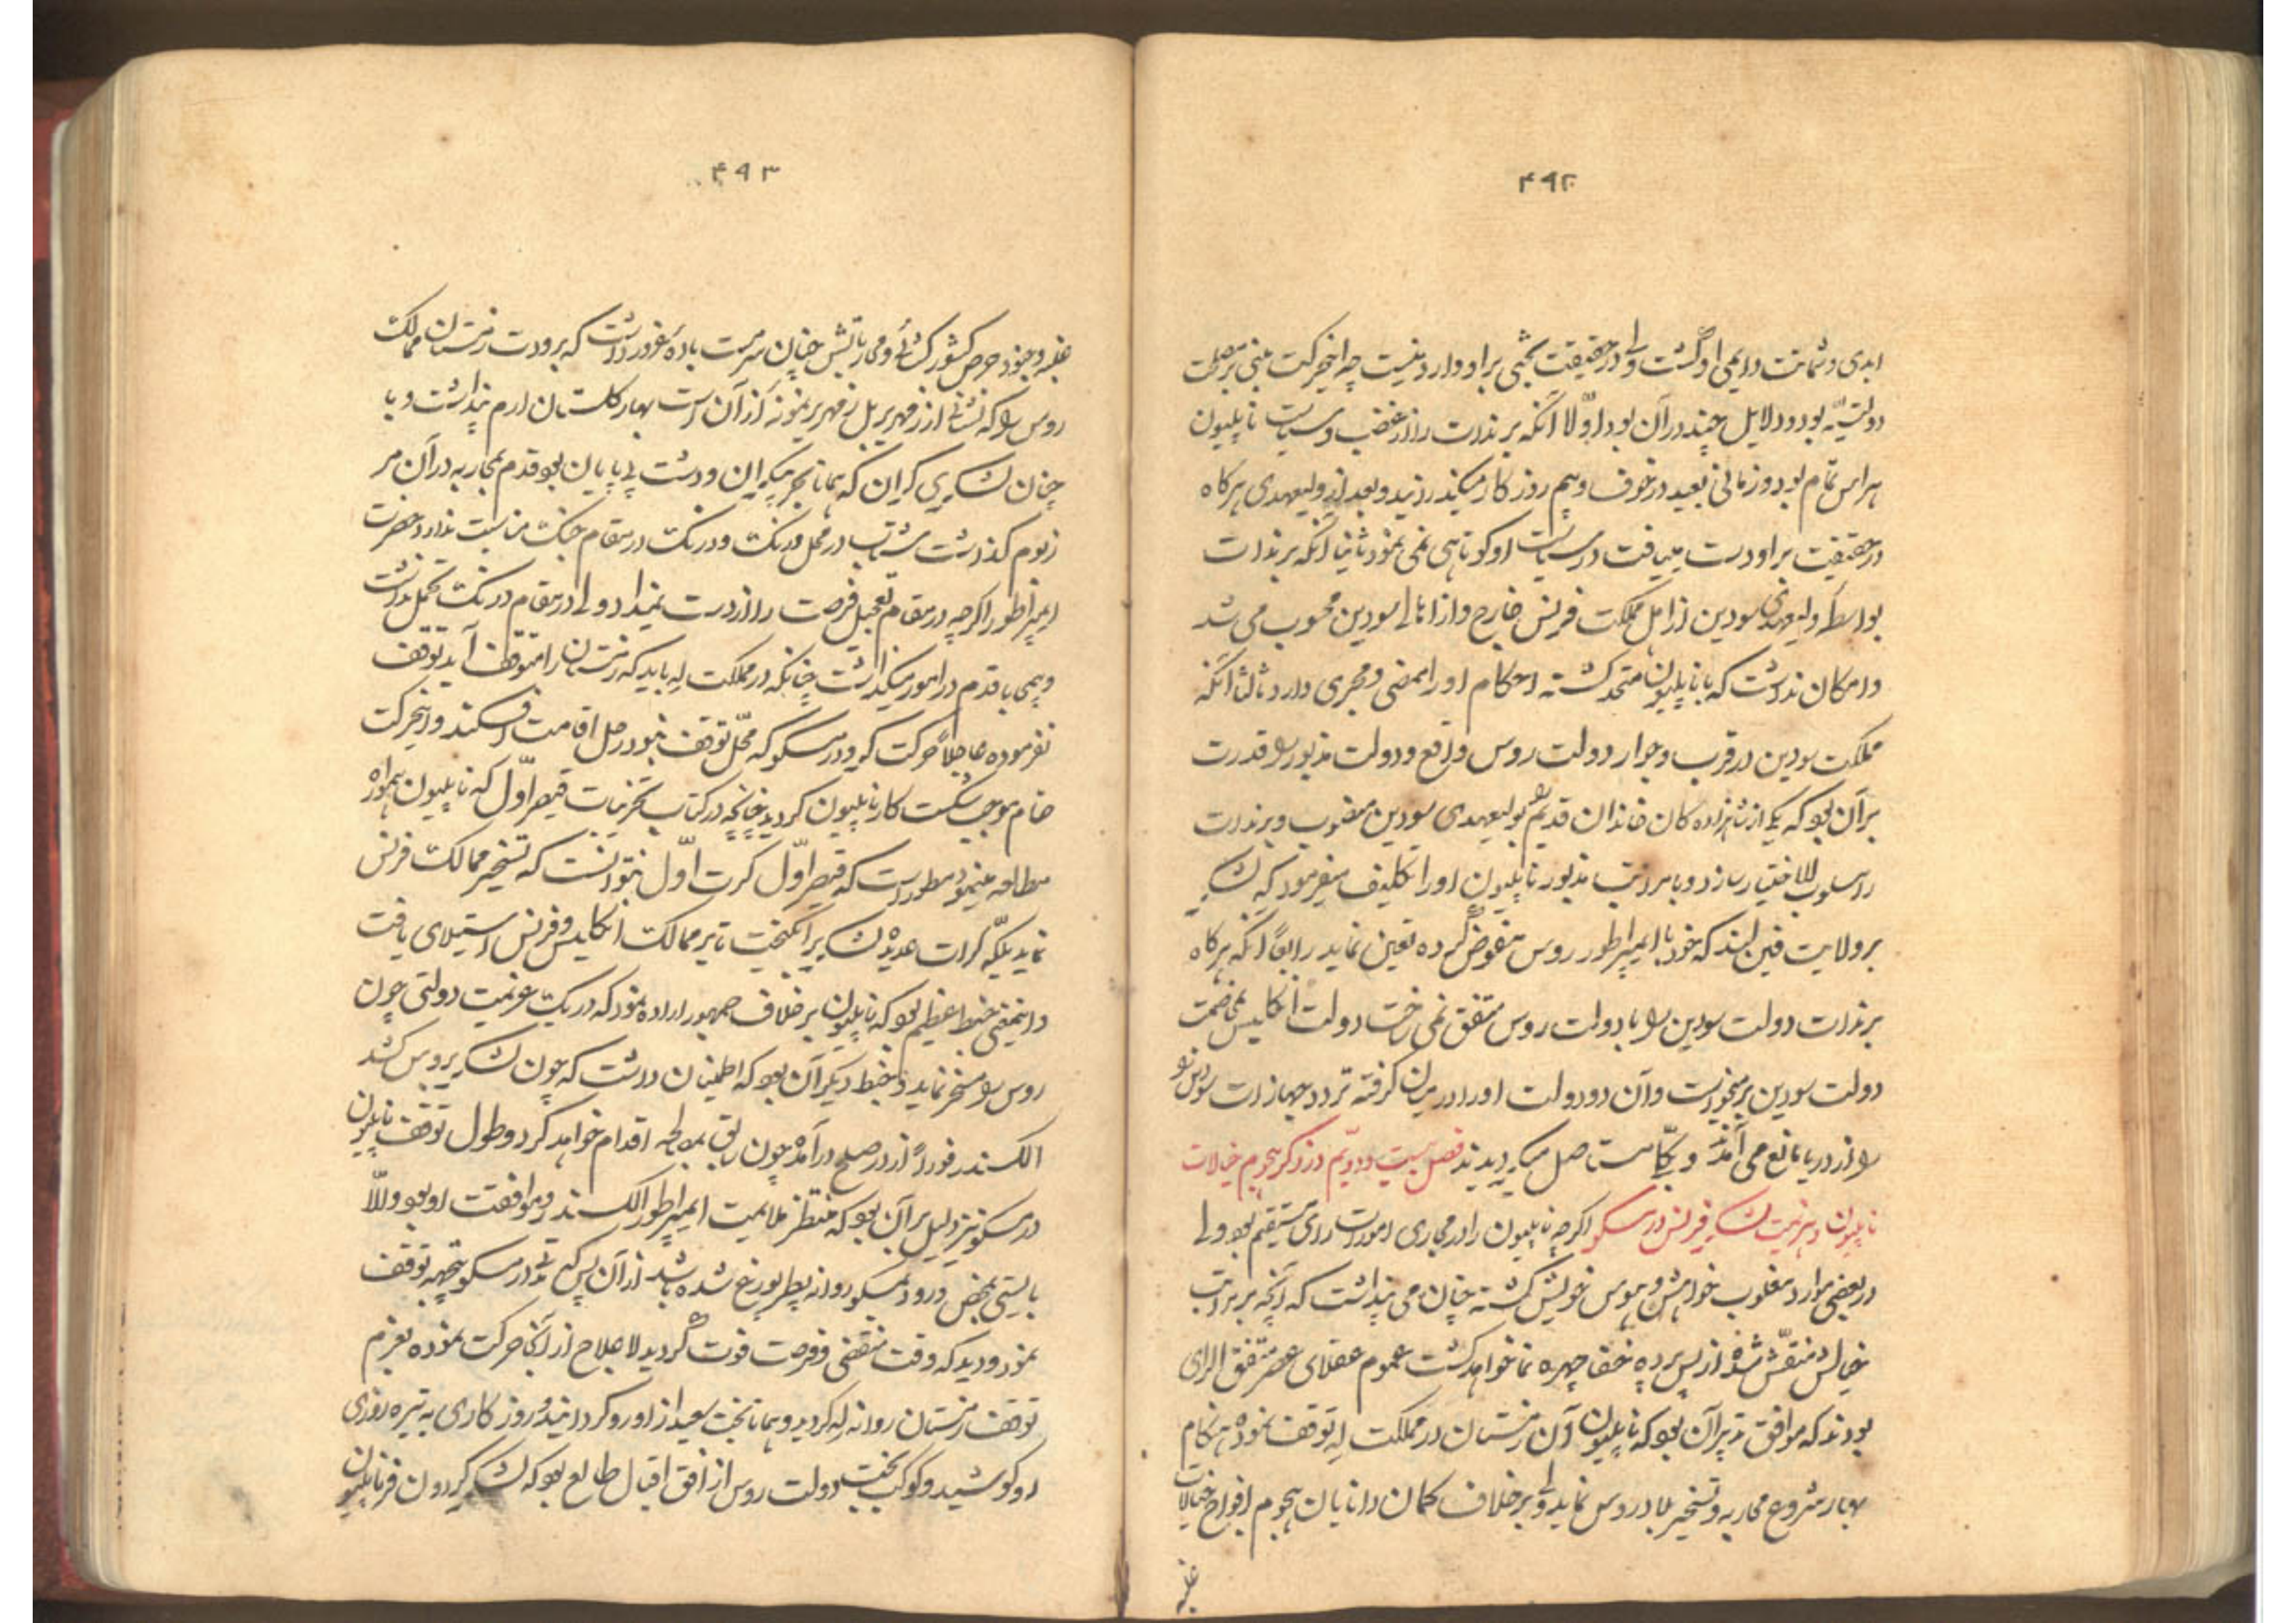 ۴۹۲
ابدی و شماتت دایمی او گشت ولی در حقیقت بحثی بر او وارد نیست چه اینحرکت مبنی بر مصلحت
دولتیه بود و دلایل چند در آن بود اولا آنکه برندات را از غضب و سیاست ناپلیون
هراس تمام بود و زمانی بعید در خوف و بیم روزکار میکذرانید و بعد از ولیعهدی هرکاه
در حقیقت بر او دست مییافت در سیاست او کوتاهی نمی نمود ثانیا آنکه برندات
بواسطه ولیعهدی سودین از اهل مملکت فرنس خارج و از اهالی سودین محسوب می شد
و امکان نداشت که با ناپلیون متحد کشته احکام او را ممضی و مجری دارد ثالثا آنکه
مملکت سودین در قرب و جوار دولت روس واقع و دولت مذبور را قدرت
بر آن بود که یکی از شاهزاده کان خاندان قدیم را بولیعهدی سودین منصوب و برندات
را مسلوب الاختیار سازد و با مراتب مذبور ناپلیون او را تکلیف میفرمود که لشکر
بر ولایت فین لند که خود با ایمپراطور روس مفوض کرده تعین نماید رابعا آنکه هرکاه
برندات دولت سودین را با دولت روس متفق نمی ساخت دولت انکلیس بمخاصمت
دولت سودین برمیخواست و آن دو دولت او را در میان کرفته تردد جهازات سودین را
را از دریا مانع می آمدند و یکباره مستاصل میکردیدند فصل بیست و دویم در ذکر هجوم خیالات
ناپلیون و هزیمت لشکر فرنس در مسکو اکرچه ناپلیون را در مجاری امورات رای مستقیم بود ولی
در بعضی موارد مغلوب خواهش و هوس خویش کشته چنان می پنداشت که آنچه بر مرآت
خیالش منقش شده از پس پرده خفا چهره نما خواهد کشت عموم عقلای عصر متفق الرای
بودند که موافق تدبیر آن بود که ناپلیون آن زمستان در مملکت له توقف نموده هنکام
بهار شروع محاربه و تسخیر بلاد روس نماید ولی بر خلاف کمان دانایان هجوم افواج خیالات
غلبه
۴۹۳
غلبه و جنود حرص کشورکشائی و محارباتش چنان سرمست باده غرور داشت که برودت زمستان ممالک
روس را که نشانی از زمهریر بل زمهریر نمونه از آن است بهار کلستان ارم پنداشت و با
چنان لشکری کران که همانا بحر بیکران و دشت بی پایان بود قدم بمحاربه در آن مر
زبوم کذاشت شتاب در محل درنک و درنک در مقام جنک مناسبت ندارد حضرت
ایمپراطور اکرچه در مقام تعجیل فرصت را از دست نمیداد ولی در مقام درنک تحمل نداشت
و بیمی با قدم در امور میکذاشت چنانکه در مملکت له باید که زمستان را متوقف آید توقف
نفرموده عاجلا حرکت کرد و در مسکو که محل توقف نبود رحل اقامت افکند و اینحرکت
خام موجب شکست کار ناپلیون کردید چنانچه در کتاب تحریات قیصر اول که ناپلیون همواره
مطالعه مینمود مسطور است که قیصر اول کرت اول نتوانست که تسخیر ممالک فرنس
نماید بلکه کرات عدیده لشکر برانکیخت تا بر ممالک انکلیس و فرنس استیلای یافت
و اینمعنی خبط اعظم بود که ناپلیون بر خلاف جمهور اراده نمود که در یک عزیمت دولتی چون
روس را مسخر نماید و خبط دیکر آن بود که اطمینان داشت که چون لشکر بروس کشد
الکسندر فورا از در صلح درآمده چون سابق بمصالحه اقدام خواهد کرد و طول توقف ناپلیون
در مسکو نیز دلیل بر آن بود که منتظر ملایمت ایمپراطور الکسندر و موافقت او بود و الا
بایستی بمحض ورود بمسکو روانه پطربورغ شده باشد از آن پس که مدتی در مسکو بیجهه توقف
نمود و دید که وقت منقضی و فرصت فوت کردیده لاعلاج از آنجا حرکت نموده بعزم
توقف زمستان روانه له کردید و همانا بخت سعید از او رو کردانیده روزکاری به تیره روزی
او کوشید و کوکب بخت دولت روس از افق اقبال طالع بود که لشکر کردون فر ناپلیون